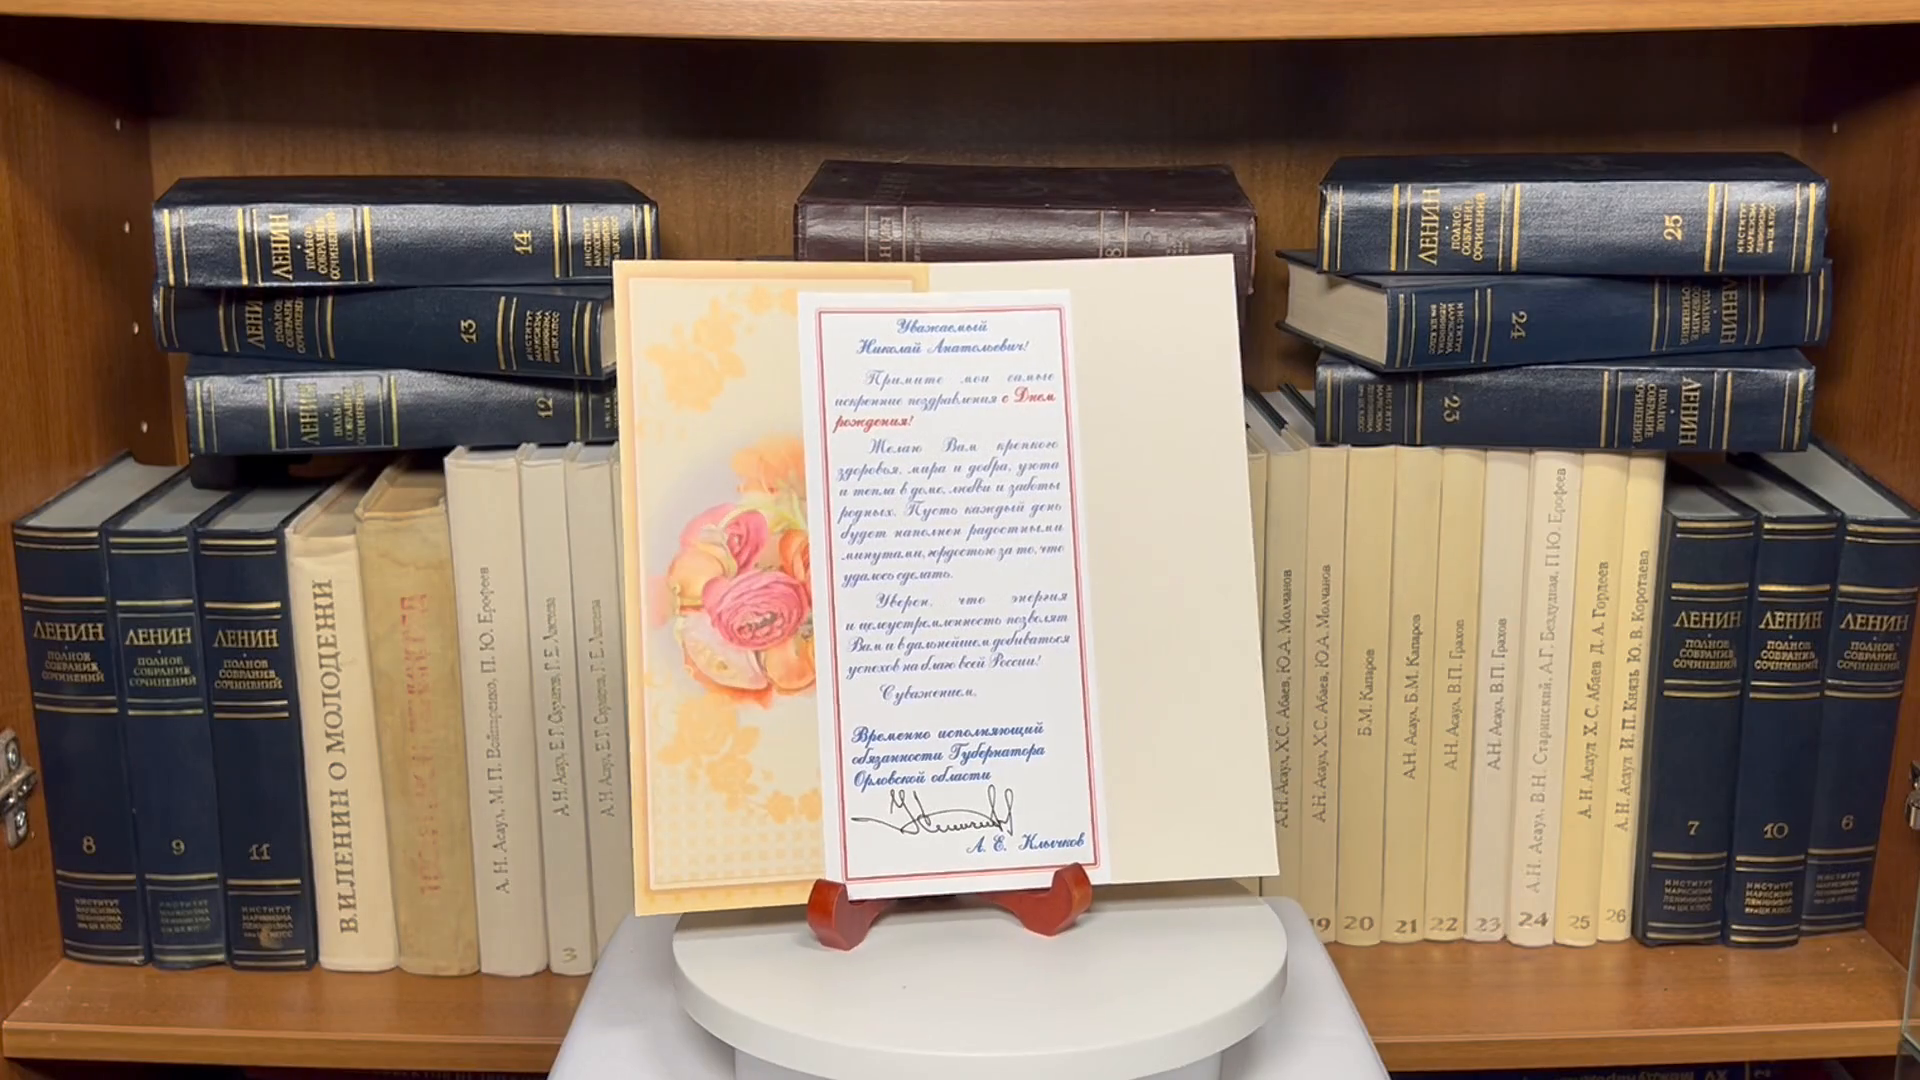 Уважаемый
Николай Анатольевич!
Примите мои самые
искренние поздравления с Днем
рождения!
Желаю Вам крепкого
здоровья, мира и добра, уюта
и тепла в доме, любви и заботы
родных. Пусть каждый день
будет наполнен радостными
минутами, гордостью за то, что
удалось сделать.
Уверен, что энергия
и целеустремленность позволят
Вам и в дальнейшем добиваться
успехов на благо всей России!
С уважением,
Временно исполняющий
обязанности Губернатора
Орловской области
А. Е. Клычков
ЛЕНИН
ПОЛНОЕ
СОБРАНИЕ
СОЧИНЕНИЙ
14
ИНСТИТУТ
МАРКСИЗМА
ЛЕНИНИЗМА
ПРИ ЦК КПСС
ЛЕНИН
ПОЛНОЕ
СОБРАНИЕ
СОЧИНЕНИЙ
13
ИНСТИТУТ
МАРКСИЗМА
ЛЕНИНИЗМА
ПРИ ЦК КПСС
ЛЕНИН
ПОЛНОЕ
СОБРАНИЕ
СОЧИНЕНИЙ
12
ЛЕНИН
ПОЛНОЕ
СОБРАНИЕ
СОЧИНЕНИЙ
25
ИНСТИТУТ
МАРКСИЗМА
ЛЕНИНИЗМА
ПРИ ЦК КПСС
ЛЕНИН
ПОЛНОЕ
СОБРАНИЕ
СОЧИНЕНИЙ
24
ИНСТИТУТ
МАРКСИЗМА
ЛЕНИНИЗМА
ПРИ ЦК КПСС
ЛЕНИН
ПОЛНОЕ
СОБРАНИЕ
СОЧИНЕНИЙ
23
ИНСТИТУТ
МАРКСИЗМА
ЛЕНИНИЗМА
ПРИ ЦК КПСС
ЛЕНИН
ПОЛНОЕ
СОБРАНИЕ
СОЧИНЕНИЙ
8
ИНСТИТУТ
МАРКСИЗМА
ЛЕНИНИЗМА
ПРИ ЦК КПСС
ЛЕНИН
ПОЛНОЕ
СОБРАНИЕ
СОЧИНЕНИЙ
9
ИНСТИТУТ
МАРКСИЗМА
ЛЕНИНИЗМА
ПРИ ЦК КПСС
ЛЕНИН
ПОЛНОЕ
СОБРАНИЕ
СОЧИНЕНИЙ
11
ИНСТИТУТ
МАРКСИЗМА
ЛЕНИНИЗМА
ПРИ ЦК КПСС
В.И.ЛЕНИН О МОЛОДЕЖИ
А. Н. Асаул, М. П. Войнаренко, П. Ю. Ерофеев
3
А.Н. Асаул, Х.С. Абаев, Ю.А. Молчанов
19
А.Н. Асаул, Х.С. Абаев, Ю.А. Молчанов
20
Б.М. Капаров
21
А.Н. Асаул, Б.М. Капаров
22
А.Н. Асаул, В.П. Грахов
23
А.Н. Асаул, В.П. Грахов
24
А.Н. Асаул, В.Н. Старинский, А.Г. Бездудная, П.Ю. Ерофеев
25
А. Н. Асаул Х. С. Абаев Д. А. Гордеев
26
А. Н. Асаул И. П. Князь Ю. В. Коротаева
ЛЕНИН
ПОЛНОЕ
СОБРАНИЕ
СОЧИНЕНИЙ
7
ИНСТИТУТ
МАРКСИЗМА
ЛЕНИНИЗМА
ПРИ ЦК КПСС
ЛЕНИН
ПОЛНОЕ
СОБРАНИЕ
СОЧИНЕНИЙ
10
ИНСТИТУТ
МАРКСИЗМА
ЛЕНИНИЗМА
ПРИ ЦК КПСС
ЛЕНИН
ПОЛНОЕ
СОБРАНИЕ
СОЧИНЕНИЙ
6
ИНСТИТУТ
МАРКСИЗМА
ЛЕНИНИЗМА
ПРИ ЦК КПСС